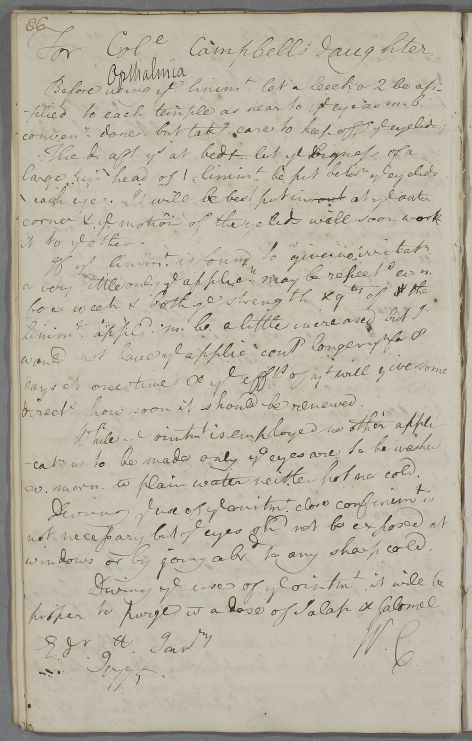 86
For Colᵉ Campbell's Daughter.
Opthalmia
Before using yᵉ linimᵗ let a leech or 2 be ap-
-plied to each temple as near to yᵉ eye as m. b.
convenᵗ done but takᵍ care to keep off yᵉ eyelids
The d. aftʳ yˢ at bedt. let yᵉ bigness of a
large pin head of linimᵗ be put betw. yᵉ eyelids
each eye. It will be best put in at yᵉ outer
corner & yᵉ motion of the eyelids will soon work
it to yᵉ other.
If yˢ linimᵗ is found to give no irritatⁿ
or very little only yᵉ applicⁿ may be repeatᵈ
week & both yᵉ strength & qᵗʸ of the
linimᵗ applᵈ m. b. a little increased but I
would not have yᵉ applicⁿ contᵈ longer yⁿ 8
days at one time & yᵉ effᵗˢ of yᵗ will give some
directⁿ how soon it should be renewed.
While yᵉ ointmᵗ is employed no other appli
-catⁿ is to be made only yᵉ eyes are to be washᵈ
ev. morn. wᵗ plain water neither hot nor cold.
During yᵉ use of yᵉ ointmᵗ close confinemᵗ is
not necessary but yᵉ eyes shᵈ not be exposed at
windows or by going abrᵈ to any sharp cold.
During yᵉ use of yᵉ ointmᵗ it will be
proper to purge w a dose of Jalap & Calomel
Edr Janʳʸ
W. C.